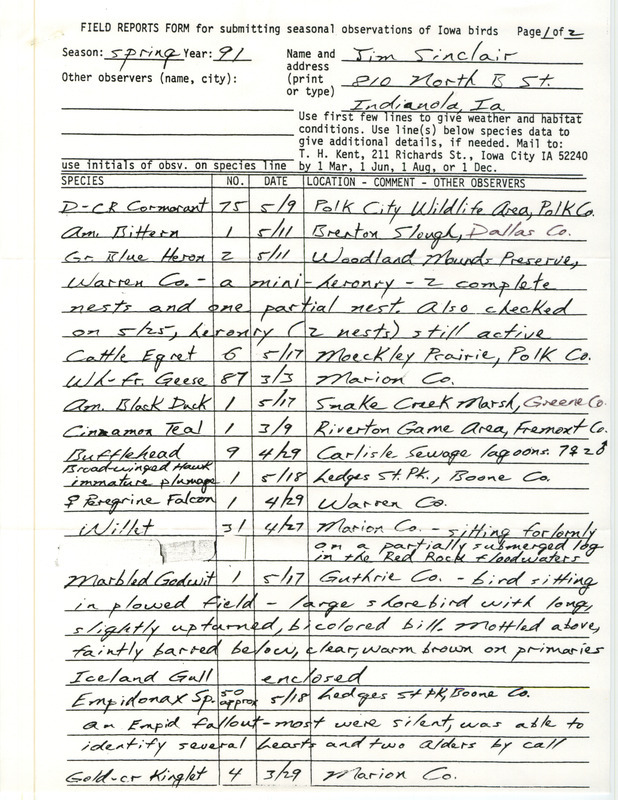 FIELD REPORTS FORM for submitting seasonal observations of Iowa birds Page 1 of 2
Season: Spring Year: 91 Name and Jim Sinclair
address
Other observers (name, city): (print 810 North B St.
or type)
Indianola, Ia
Use first few lines to give weather and habitat
conditions. Use line(s) below species data to
give additional details, if needed. Mail to:
T. H. Kent, 211 Richards St., Iowa City IA 52240
use initials of obsv. on species line by 1 Mar, 1 Jun, 1 Aug, or 1 Dec.
SPECIES NO. DATE LOCATION - COMMENT - OTHER OBSERVERS
D-CR Cormorant 75 5/9 Polk City Wildlife Area, Polk Co.
Am. Bittern 1 5/11 Brenton Slough, Dallas Co.
Gr Blue Heron 2 5/11 Woodland Mounds Preserve,
Warren Co. - a mini-heronry - 2 complete
nests and one partial nest. Also checked
on 5/25, heronry (2 nests) still active
Cattle Egret 6 5/17 Moeckley Prairie, Polk Co.
Wh-fr. Geese 87 3/3 Marion Co.
Am. Black Duck 1 5/17 Snake Creek Marsh, Greene Co.
Cinnamon Teal 1 3/9 Riverton Game Area, Fremont Co.
Bufflehead 9 4/29 Carlisle Sewage lagoons. 7♀ 2♂
Broad-winged Hawk
immature plumage 1 5/18 Ledges St. Pk., Boone Co.
♀ Peregrine Falcon 1 4/29 Warren Co.
Willet 31 4/27 Marion Co. - sitting forlornly
on a partially submerged log
in the Red Rock floodwaters
Marbled Godwit 1 5/17 Guthrie Co. - bird sitting
in plowed field - large shorebird with long,
slightly upturned, bicolored bill. Mottled above,
faintly barred below, clear, warm brown on primaries
Iceland Gull enclosed
Empidonax Sp. 50 approx 5/18 Ledges St Pk, Boone Co.
an Empid fallout - most were silent, was able to
identify several leasts and two alders by call
Gold-cr Kinglet 4 3/29 Marion Co.